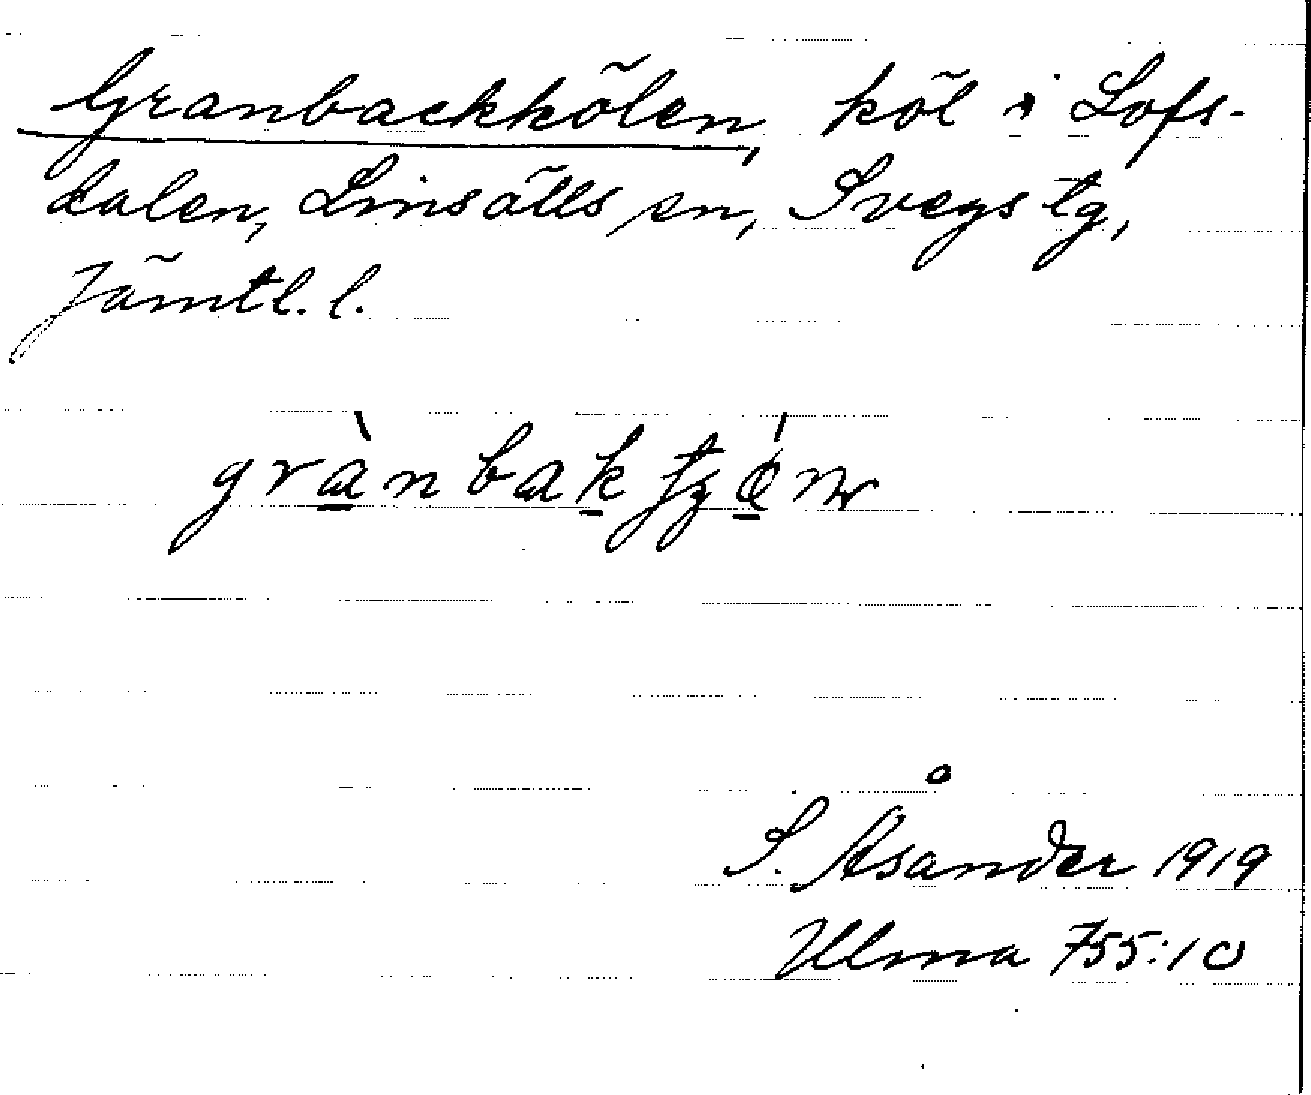 Granbackkölen, köl i Lofs-
dalen, Linsälls sn, Svegs tg,
Jämtl. l.
S. Åsander 1919
Ulma 755:10